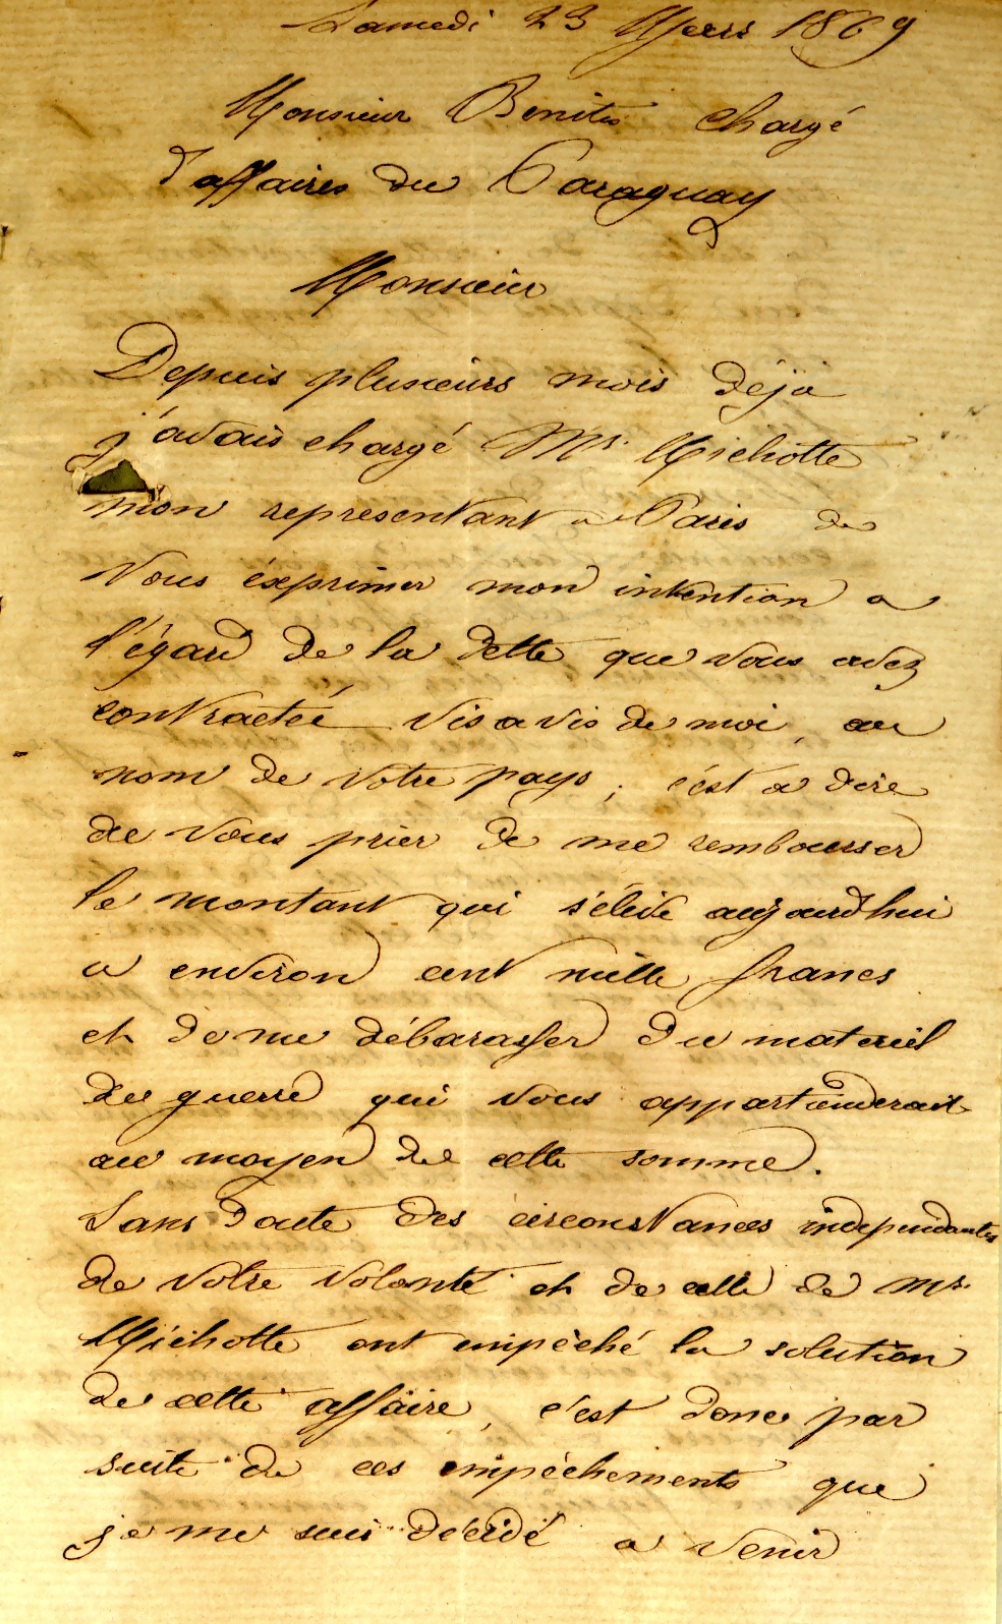 Samedi 23 Mars 1869
Monsieur Benites chargé
d'affaires du Paraguay
Monsieur
Depuis plusieurs mois déjà
j'avais chargé Mr. Michotte
mon representant a Paris de
vous éxprimer mon intention a
l'égard de la dette que vous avez
contractée vis a vis de moi, au
nom de votre pays ; c'est a dire
de vous prier de me rembourser
le montant qui s'élève aujourdhui
a environ cent mille francs
et de me débarasser du materiel
de guerre qui vous appartienderait
au moyen de cette somme.
Sans doute des circonstances independantes
de votre volonté et de celle de Mr.
Michotte ont empêché la solution
de cette affaire, c'est donc par
suite de ces empêchements que
je me suis décidé a venir